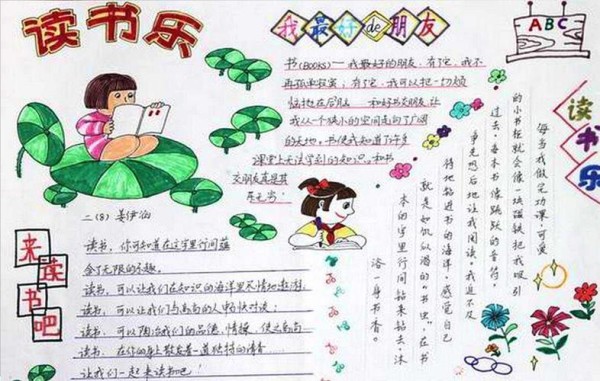 读书乐
我最好de朋友
ABC
书(BOOKS)——我最好的朋友,有了它,我不
再孤单寂寞;有了它,我可以把一切烦
恼抛在脑后
和好书交朋友,让
我从一个狭小的空间走向了广阔
的天地。书使我知道了许多
课堂上无法学到的知识。和书
交朋友真是其
乐无穷!
二(8) 姜伊涵
来读书吧
读书,你可知道在这字里行间蕴
含了无限的乐趣。
读书,可以让我们在知识的海洋里尽情地遨游;
读书,可以让我们与高尚的人畅快对谈;
读书,可以陶冶我们的品德、情操,使之高尚
读书,在你的身上散发着一道独特的清香……
让我们一起来读书吧!
读书乐
每当我做完功课,可爱
的小书柜就会像一块磁铁把我吸引
过去,每本书像跳跃的音符,
争先恐后地让我阅读。我迫不及
待地钻进书的海洋,感觉自己
就是如饥似渴的“书虫”,在书
本的字里行间钻来钻去,沐
浴一身书香。